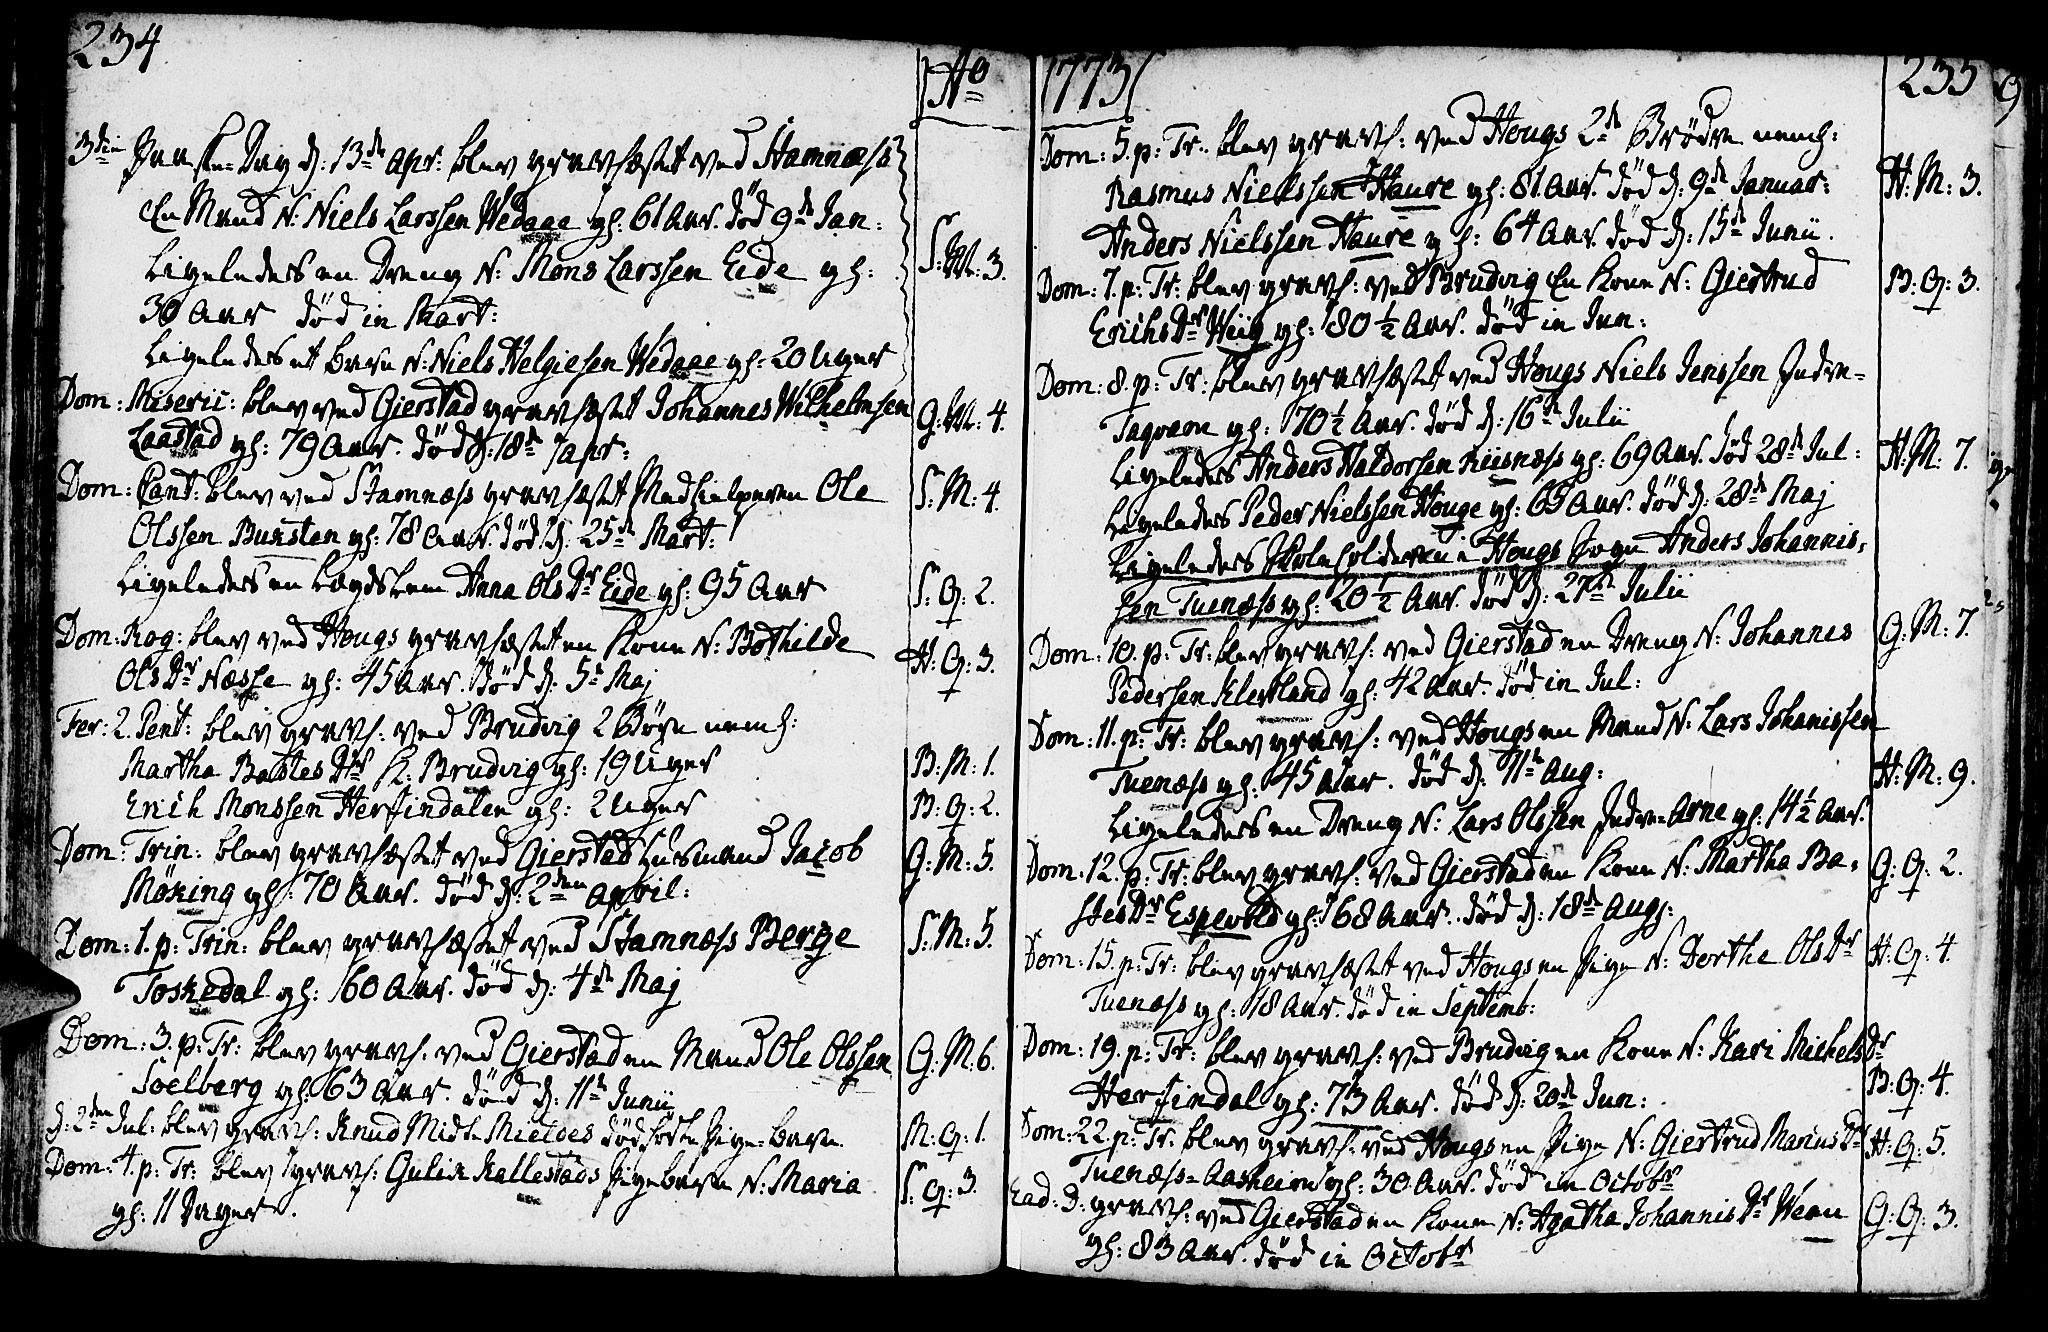 234
Ao
3die Paaske-Dag d: 13de apr: blev gravfæstet ved Stamnæss
En Mand N: Niels Larssen Wedaae gl: 61 Aar. død 9de Jan:
Ligeledes en Dreng N: Mons Larssen Eide gl:
30 Aar død in Mart:
S: M: 3.
Ligeledes et barn N: Niels Helgiesen Wedaae gl: 20 Uger
Dom: Miseric: blev ved Gierstad gravfæstet Johannes Wilhelmsen
Laastad gl: 79 Aar. død d: 18de apr:
G: M: 4.
Dom: Cant: blev ved Stamnæss gravfæstet Medhielperen Ole
Olssen Buksten gl: 78 Aar. død d: 25de Mart:
S: M: 4.
Ligeledes en Lægdslem Anna Ols Dr Eide gl: 95 Aar
S: Q: 2.
Dom: Rog: blev ved Hougs gravfæstet en Kone N: Bothilde
Ols Dr Næsse gl: 45 Aar. død d: 5te Maj
H: Q: 3.
Fer: 2. Pent: blev gravf: ved Brudvig 2 Børn neml:
Martha Bastes Dr K: Brudvig gl: 19 Uger
B: M: 1.
Erich Monssen Herfindalen gl: 2 Uger
B: Q: 2.
Dom: Trin: blev gravfæstet ved Gierstad Husmand Jacob
Møking gl: 70 Aar. død d: 2den april:
G: M: 5.
Dom: 1. p: Trin: blev gravfæstet ved Stamnæss Berge
Toskedal gl: 60 Aar. død d: 4de Maj
S: M: 5.
Dom: 3. p: Tr: blev gravf: ved Gierstad en Mand Ole Olssen
Soelberg gl: 63 Aar. død d: 11te Junii
G: M: 6.
d: 2den Jul: blev gravf: Knud Midtn Mieldes dødfødte Pige-barn
M: Q: 1.
Dom: 4. p: Tr: blev gravf: Gulik Kallestads Pigebarn N: Maria
gl: 11 Dager.
S: Q: 3.
1773
235
Dom: 5. p: Tr. blev gravf: ved Hougs 2de Brødre neml:
Rasmus Nielssen Haure gl: 81 Aar. død d: 9de Januar:
H: M: 3.
Anders Nielssen Haure gl: 64 Aar. død d: 15de Junii.
Dom: 7. p: Tr: blev gravf: ved Brudvig En Kone N: Giertrud
Erichs Dr Wiig gl: 80 ½ Aar. død in Jun:
B: Q: 3.
Dom: 8. p: Tr: blev gravfæstet ved Hougs Niels Jenssen Indre-
Taqvam gl: 70 ½ Aar. død d: 16de Julii
Ligeledes Anders Haldorsen Riisnæss gl: 69 Aar. død 28de Jul:
H: M: 7.
Ligeledes Peder Nielssen Houge gl: 65 Aar. død d: 28de Maj
Ligeledes Skoleholderen i Hougs Sogn Anders Johannis-
sen Tuenæss gl: 20 ½ Aar. død d: 27de Julii
Dom: 10. p: Tr: blev gravf: ved Gierstad en Dreng N: Johannes
Pedersen Kleveland gl: 42 Aar. død in Jul:
G: M: 7.
Dom: 11. p: Tr: blev gravf: ved Hougs en Mand N: Lars Johanissen
Tuenæss gl: 45 Aar. død d: 11te Aug:
H: M: 9.
Ligeledes en Dreng N: Lars Olssen Indre-Arne gl: 14 ½ Aar.
Dom: 12. p: Tr: blev gravf: ved Gierstad en Kone N: Martha Ba-
stes Dr Espevold gl: 68 Aar. død d: 18de Aug:
G: Q: 2.
Dom: 15. p: Tr: blev gravfæstet ved Hougs en Pige N: Dorthe Ols Dr
Tuenæss gl: 18 Aar. død in Septemb:
H: Q: 4.
Dom: 19. p: Tr: blev gravf: ved Brudvig en Kone N: Kari Michels Dr
Herfindal gl: 73 Aar. død d: 20de Jun:
B: Q: 4.
Dom: 22. p: Tr: blev gravf: ved Hougs en Pige N: Giertrud Marius Dr
Tuenæss-Aasheim gl: 30 Aar. død in Octobr
H: Q: 5.
Ead: D: gravf: ved Gierstad en Kone N: Agatha Johannis Dr Weau
gl: 83 Aar. død in Octobr
G: Q: 3.